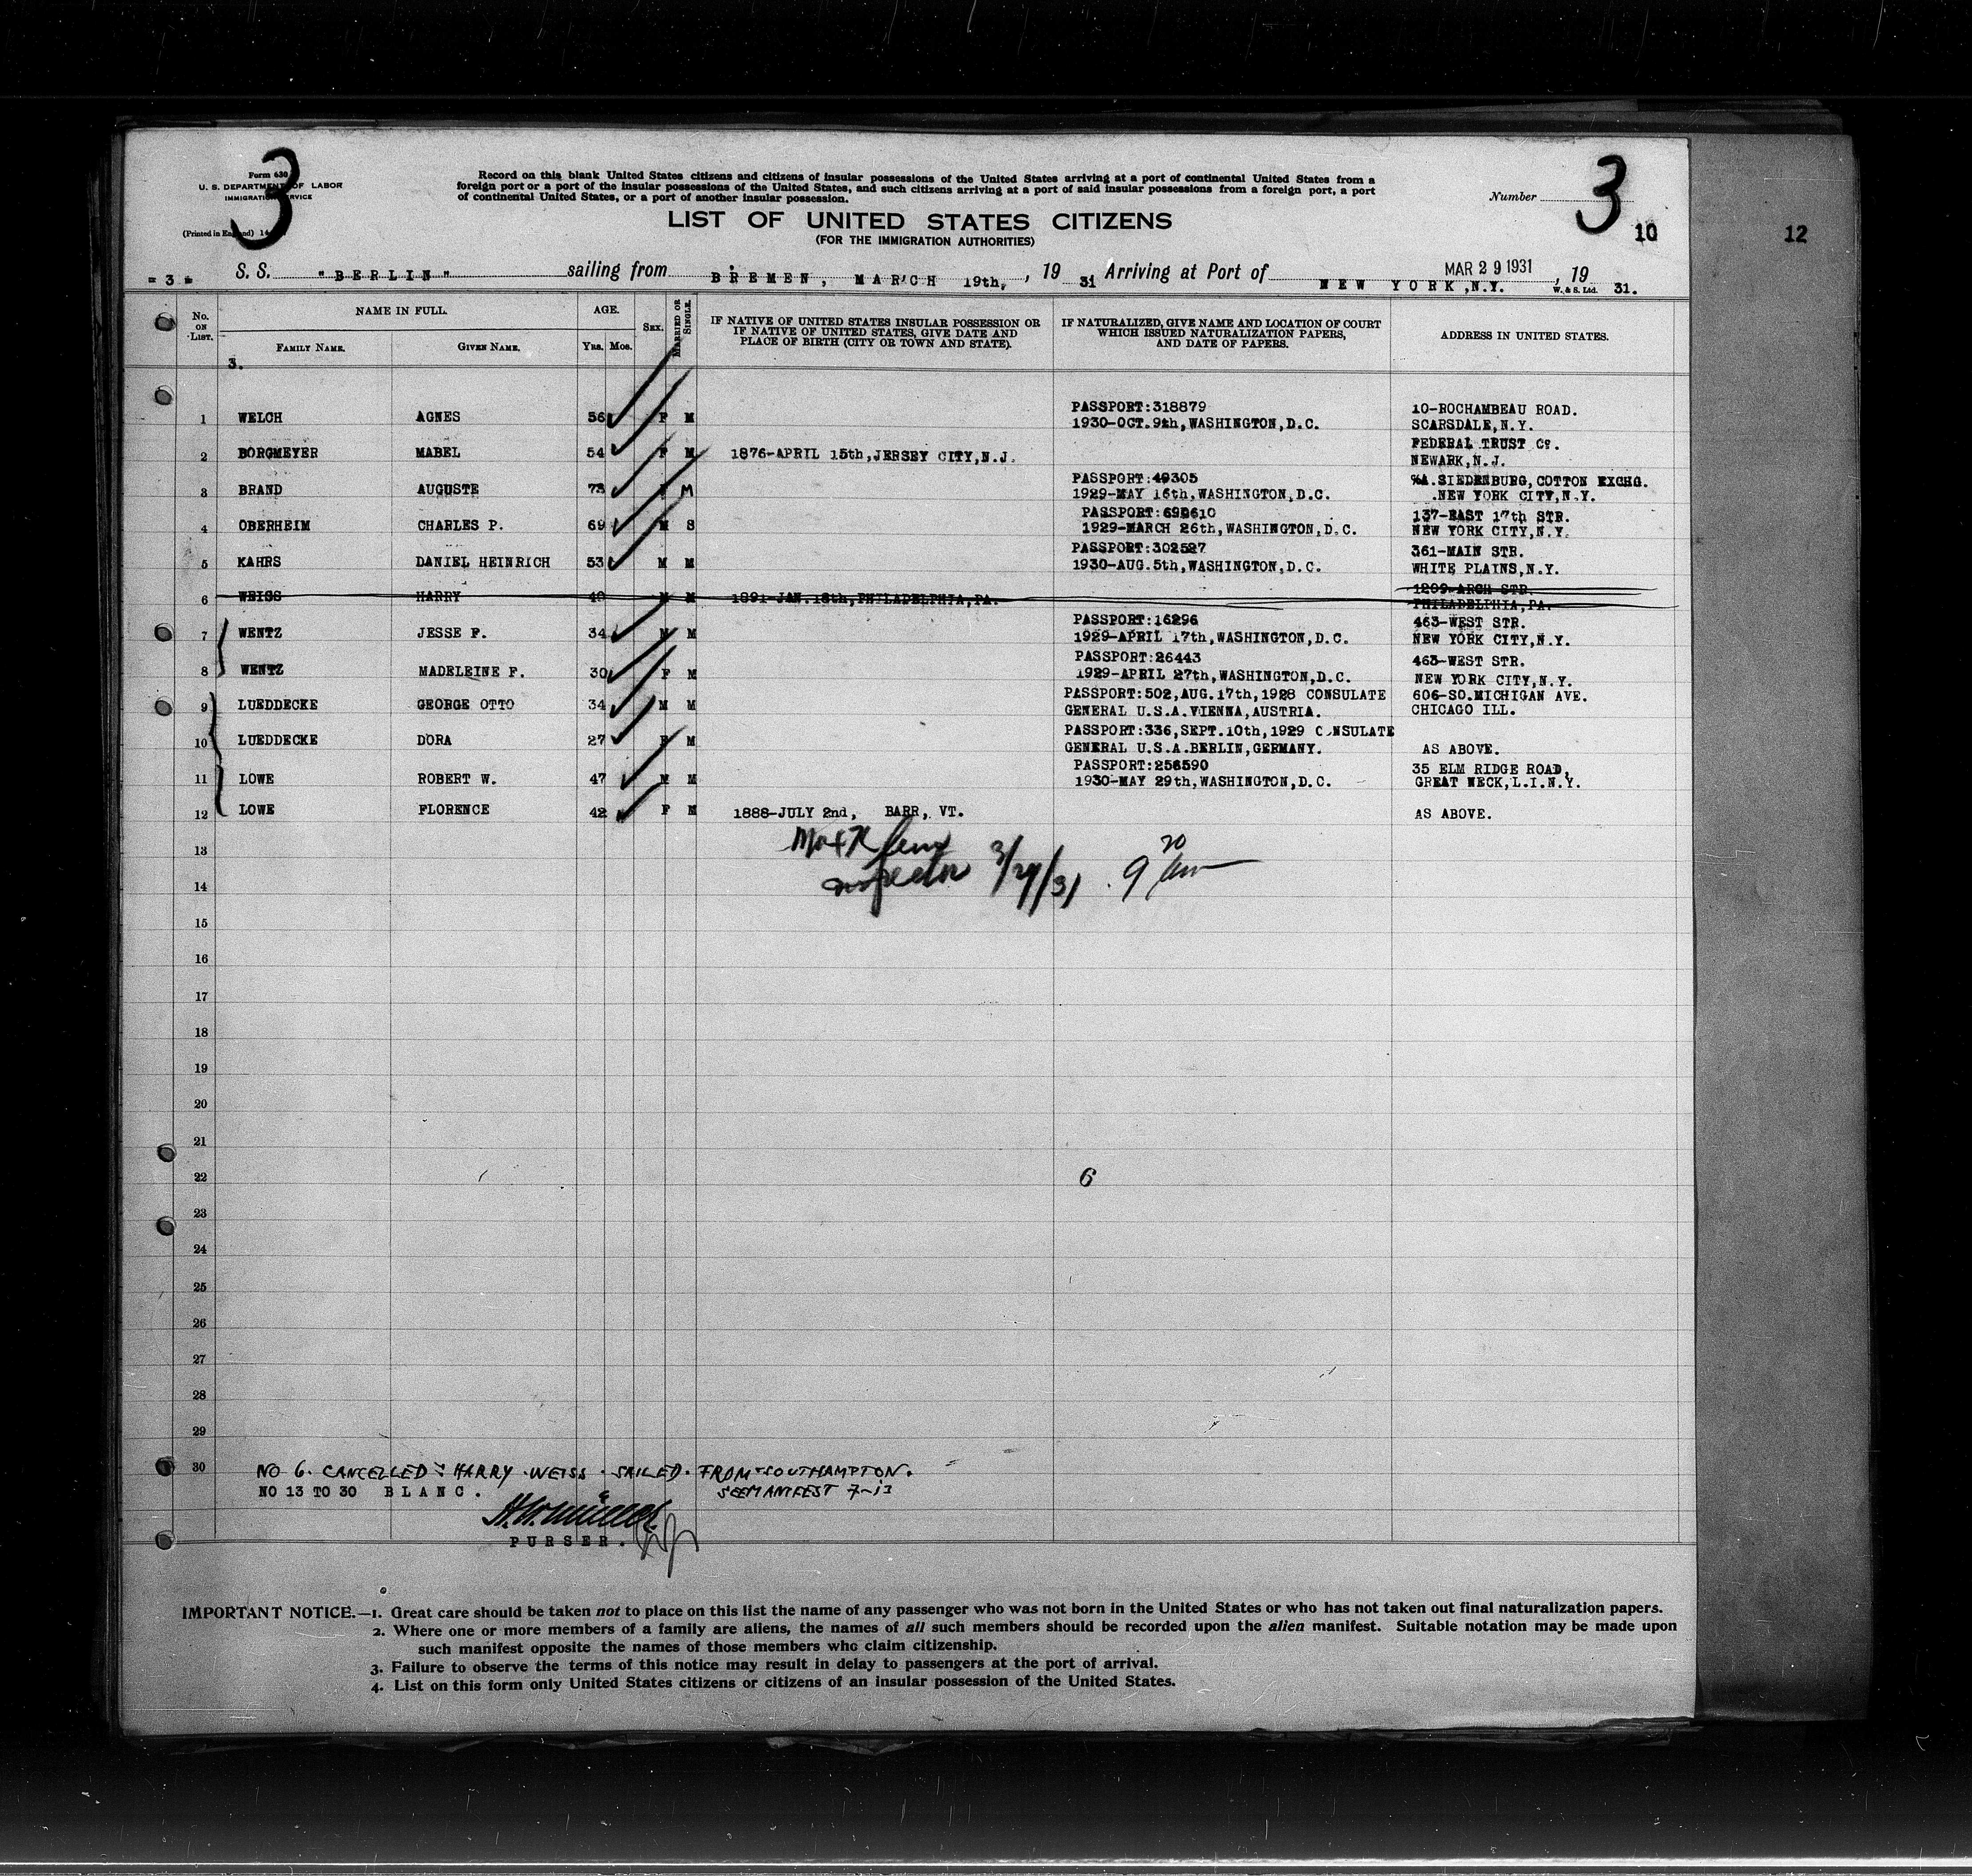 3
3
Form 630
U. S. DEPARTMENT OF LABOR
IMMIGRATION SERVICE
(Printed in England)
Record on this blank United States citizens and citizens of insular possessions of the United States arriving at a port of continental United States from a
foreign port or a port of the insular possessions of the United States, and such citizens arriving at a port of said insular possessions from a foreign port, a port
of continental United States, or a port of another insular possession.
Number
10
12
LIST OF UNITED STATES CITIZENS
(FOR THE IMMIGRATION AUTHORITIES)
= 3 = S. S. "BERLIN" sailing from BREMEN, MARCH 19th, , 19 31 Arriving at Port of NEW YORK,N.Y. MAR 29 1931 , 19 31.
W. & S. Ltd.
No. ON LIST. NAME IN FULL. AGE. SEX. MARRIED OR SINGLE. IF NATIVE OF UNITED STATES INSULAR POSSESSION OR IF NATIVE OF UNITED STATES, GIVE DATE AND PLACE OF BIRTH (CITY OR TOWN AND STATE). IF NATURALIZED, GIVE NAME AND LOCATION OF COURT WHICH ISSUED NATURALIZATION PAPERS, AND DATE OF PAPERS. ADDRESS IN UNITED STATES.
FAMILY NAME. GIVEN NAME. Yrs. Mos.
3.
1 WELCH AGNES 56 F M PASSPORT:318879 10-ROCHAMBEAU ROAD.
1930-OCT.9th,WASHINGTON,D.C. SCARSDALE,N.Y.
2 BORGMEYER MABEL 54 F M 1876-APRIL 15th,JERSEY CITY,N.J. FEDERAL TRUST Co.
NEWARK,N.J.
3 BRAND AUGUSTE 73 F M PASSPORT:49305 %A.SIEDENBURG,COTTON EXCHG.
1929-MAY 16th,WASHINGTON,D.C. NEW YORK CITY,N.Y.
4 OBERHEIM CHARLES P. 69 M S PASSPORT: 137-EAST 17th STR.
1929-MARCH 26th,WASHINGTON,D.C. NEW YORK CITY,N.Y.
5 KAHRS DANIEL HEINRICH 53 M M PASSPORT:302527 361-MAIN STR.
1930-AUG.5th,WASHINGTON,D.C. WHITE PLAINS,N.Y.
6 WEISS HARRY 40 M M 1891-JAN.18th,PHILADELPHIA,PA. 1209-ARCH STR.
PHILADELPHIA,PA.
7 WENTZ JESSE F. 34 M M PASSPORT:16296 463-WEST STR.
1929-APRIL 17th,WASHINGTON,D.C. NEW YORK CITY,N.Y.
8 WENTZ MADELEINE F. 30 F M PASSPORT:26443 463-WEST STR.
1929-APRIL 27th,WASHINGTON,D.C. NEW YORK CITY,N.Y.
9 LUEDDECKE GEORGE OTTO 34 M M PASSPORT:502,AUG.17th,1928 CONSULATE 606-SO.MICHIGAN AVE.
GENERAL U.S.A.VIENNA,AUSTRIA. CHICAGO ILL.
10 LUEDDECKE DORA 27 F M PASSPORT:336,SEPT.10th,1929 CONSULATE
GENERAL U.S.A.BERLIN,GERMANY. AS ABOVE.
11 LOWE ROBERT W. 47 M M PASSPORT:256590 35 ELM RIDGE ROAD,
1930-MAY 29th,WASHINGTON,D.C. GREAT NECK,L.I.N.Y.
12 LOWE FLORENCE 42 F M 1888-JULY 2nd, BARR, VT. AS ABOVE.
13
Inspector 3/29/31 . 9 20 am
14
15
16
17
18
19
20
21
22 6
23
24
25
26
27
28
29
30 NO 6. CANCELLED: HARRY WEISS. SAILED. FROM SOUTHAMPTON.
NO 13 TO 30 BLANC. SEE MANIFEST 7-13
H.W.Müller
PURSER.
IMPORTANT NOTICE.—1. Great care should be taken not to place on this list the name of any passenger who was not born in the United States or who has not taken out final naturalization papers.
2. Where one or more members of a family are aliens, the names of all such members should be recorded upon the alien manifest. Suitable notation may be made upon
such manifest opposite the names of those members who claim citizenship.
3. Failure to observe the terms of this notice may result in delay to passengers at the port of arrival.
4. List on this form only United States citizens or citizens of an insular possession of the United States.